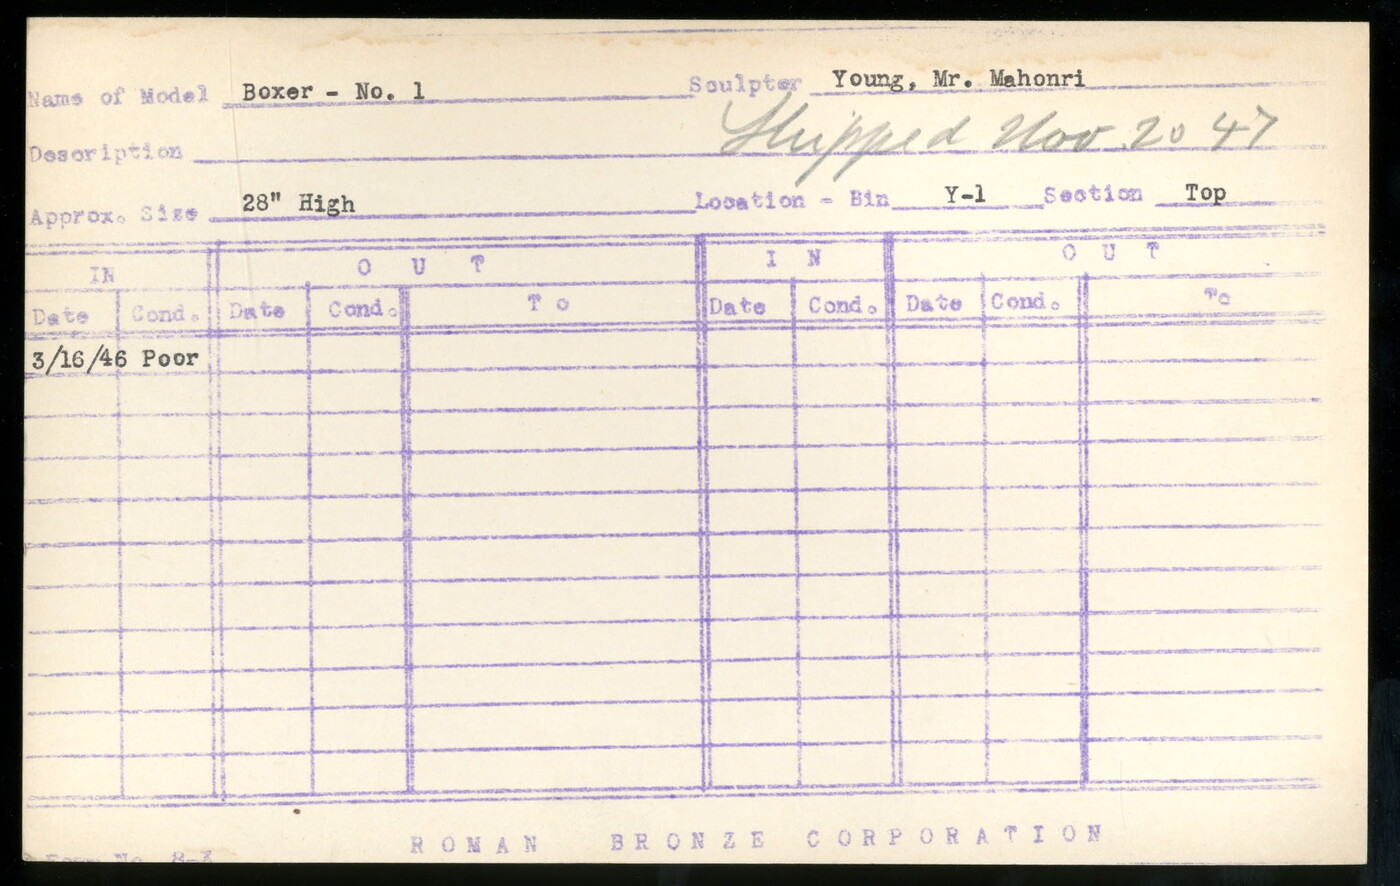 Name of Model Boxer - No. 1 Sculpter Young, Mr. Mahonri
Shipped Nov 20 47
Description
Approx. Size 28" High Location - Bin Y-1 Section Top
IN OUT IN OUT
Date Cond. Date Cond. To Date Cond. Date Cond. To
3/16/46 Poor
ROMAN BRONZE CORPORATION
Form No. 8-3